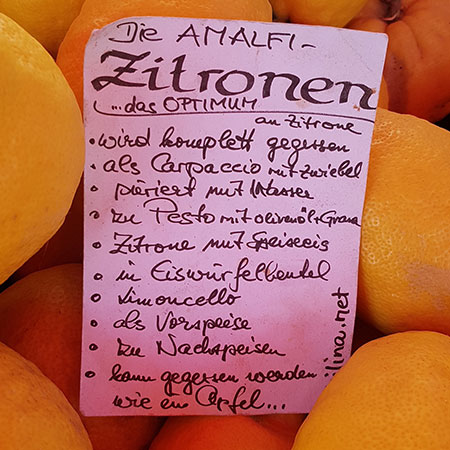 Die AMALFI-
Zitronen
...das OPTIMUM
an Zitrone
• wird komplett gegessen
• als Carpaccio mit Zwiebel
• püriert mit Wasser
• zu Pesto mit olivenöl+Grana
• Zitrone mit Speiseeis
• in Eiswürfelbeutel
• Limoncello
• als Vorspeise
• zu Nachspeisen
• kann gegessen werden
wie ein Apfel...
ilina.net